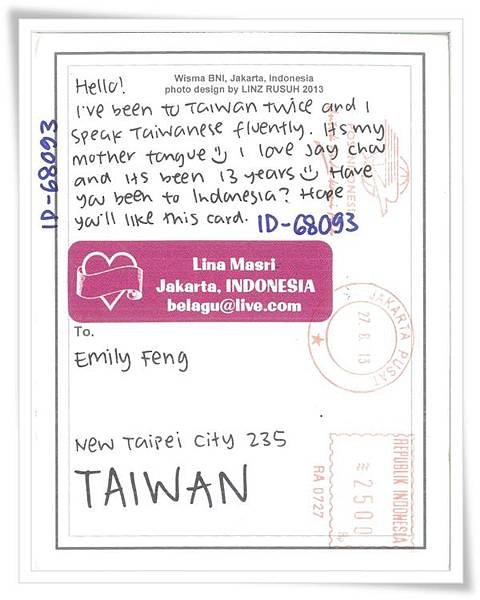 Wisma BNI, Jakarta, Indonesia
photo design by LINZ RUSUH 2013
Hello!
I've been to Taiwan twice and I
speak Taiwanese fluently. Its my
mother tongue I love Jay chou
and its been 13 years Have
you been to Indonesia? Hope
you'll like this card. ID-68093
ID-68093
Lina Masri
Jakarta, INDONESIA
belagu@live.com
To.
Emily Feng
New Taipei City 235
TAIWAN
JAKARTA PUSAT
27. 8. 13
REPUBLIK INDONESIA
2500
Rp
RA 0727
POS INDONESIA